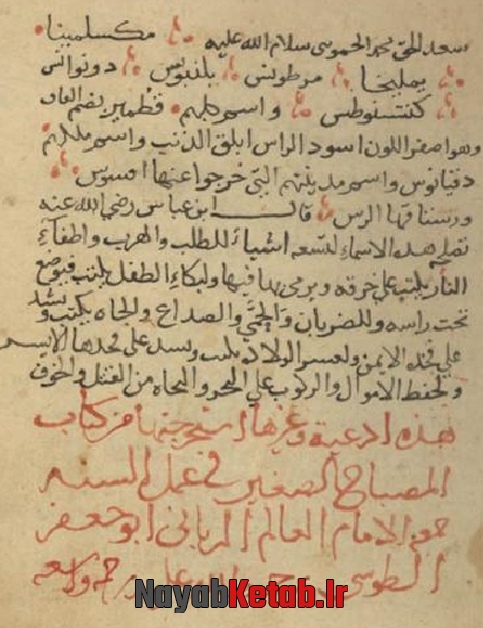 سعد الحق محمد الحموسى سلام الله عليه مكسلمينا
يمليخا مرطونس بلنفوس دونوانس
كنتسنوطس واسم كلبهم قطمير بضم القاف
وهو اصفر اللون اسود الراس ابلق الذنب واسم ملكهم
دقيانوس واسم مدينتهم التي خرجوا عنها افسوس
ورستاقها الرس قال ابن عباس رضي الله عنه
تصلح هذه الاسماء لتسعه اشياء للطلب والهرب واطفاء
النار يكتب علي خرقه ويرمي بها فيها ولبكاء الطفل يكتب فيوضع
تحت راسه وللضربان والحمي والصداع والجاه يكتب ويشد
علي فخذه الايمن ولعسر الولاد يكتب ويسد علي فخدها الايسر
ولحفظ الاموال والركوب علي البحر والنجاه من القتل والخوف
هذه ادعية وغيرها استخرجتها من كتاب
المصباح الصغير في عمل السنه
جمع الامام العالم الرباني ابو جعفر
الطوسي رحمة الله عليه رحمة واسعه
NayabKetab.Ir